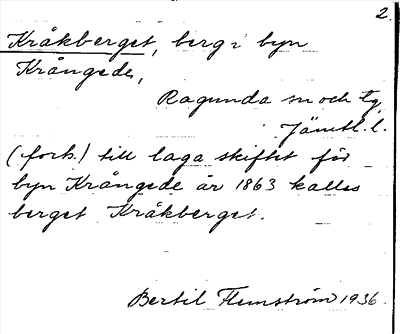 2.
Kråkberget, berg i byn
Krångede,
Ragunda sn och tg,
Jämtl. l.
(forts.) till laga skiftet för
byn Krångede år 1863 kallas
berget Kråkberget.
Bertil Flemström 1936.